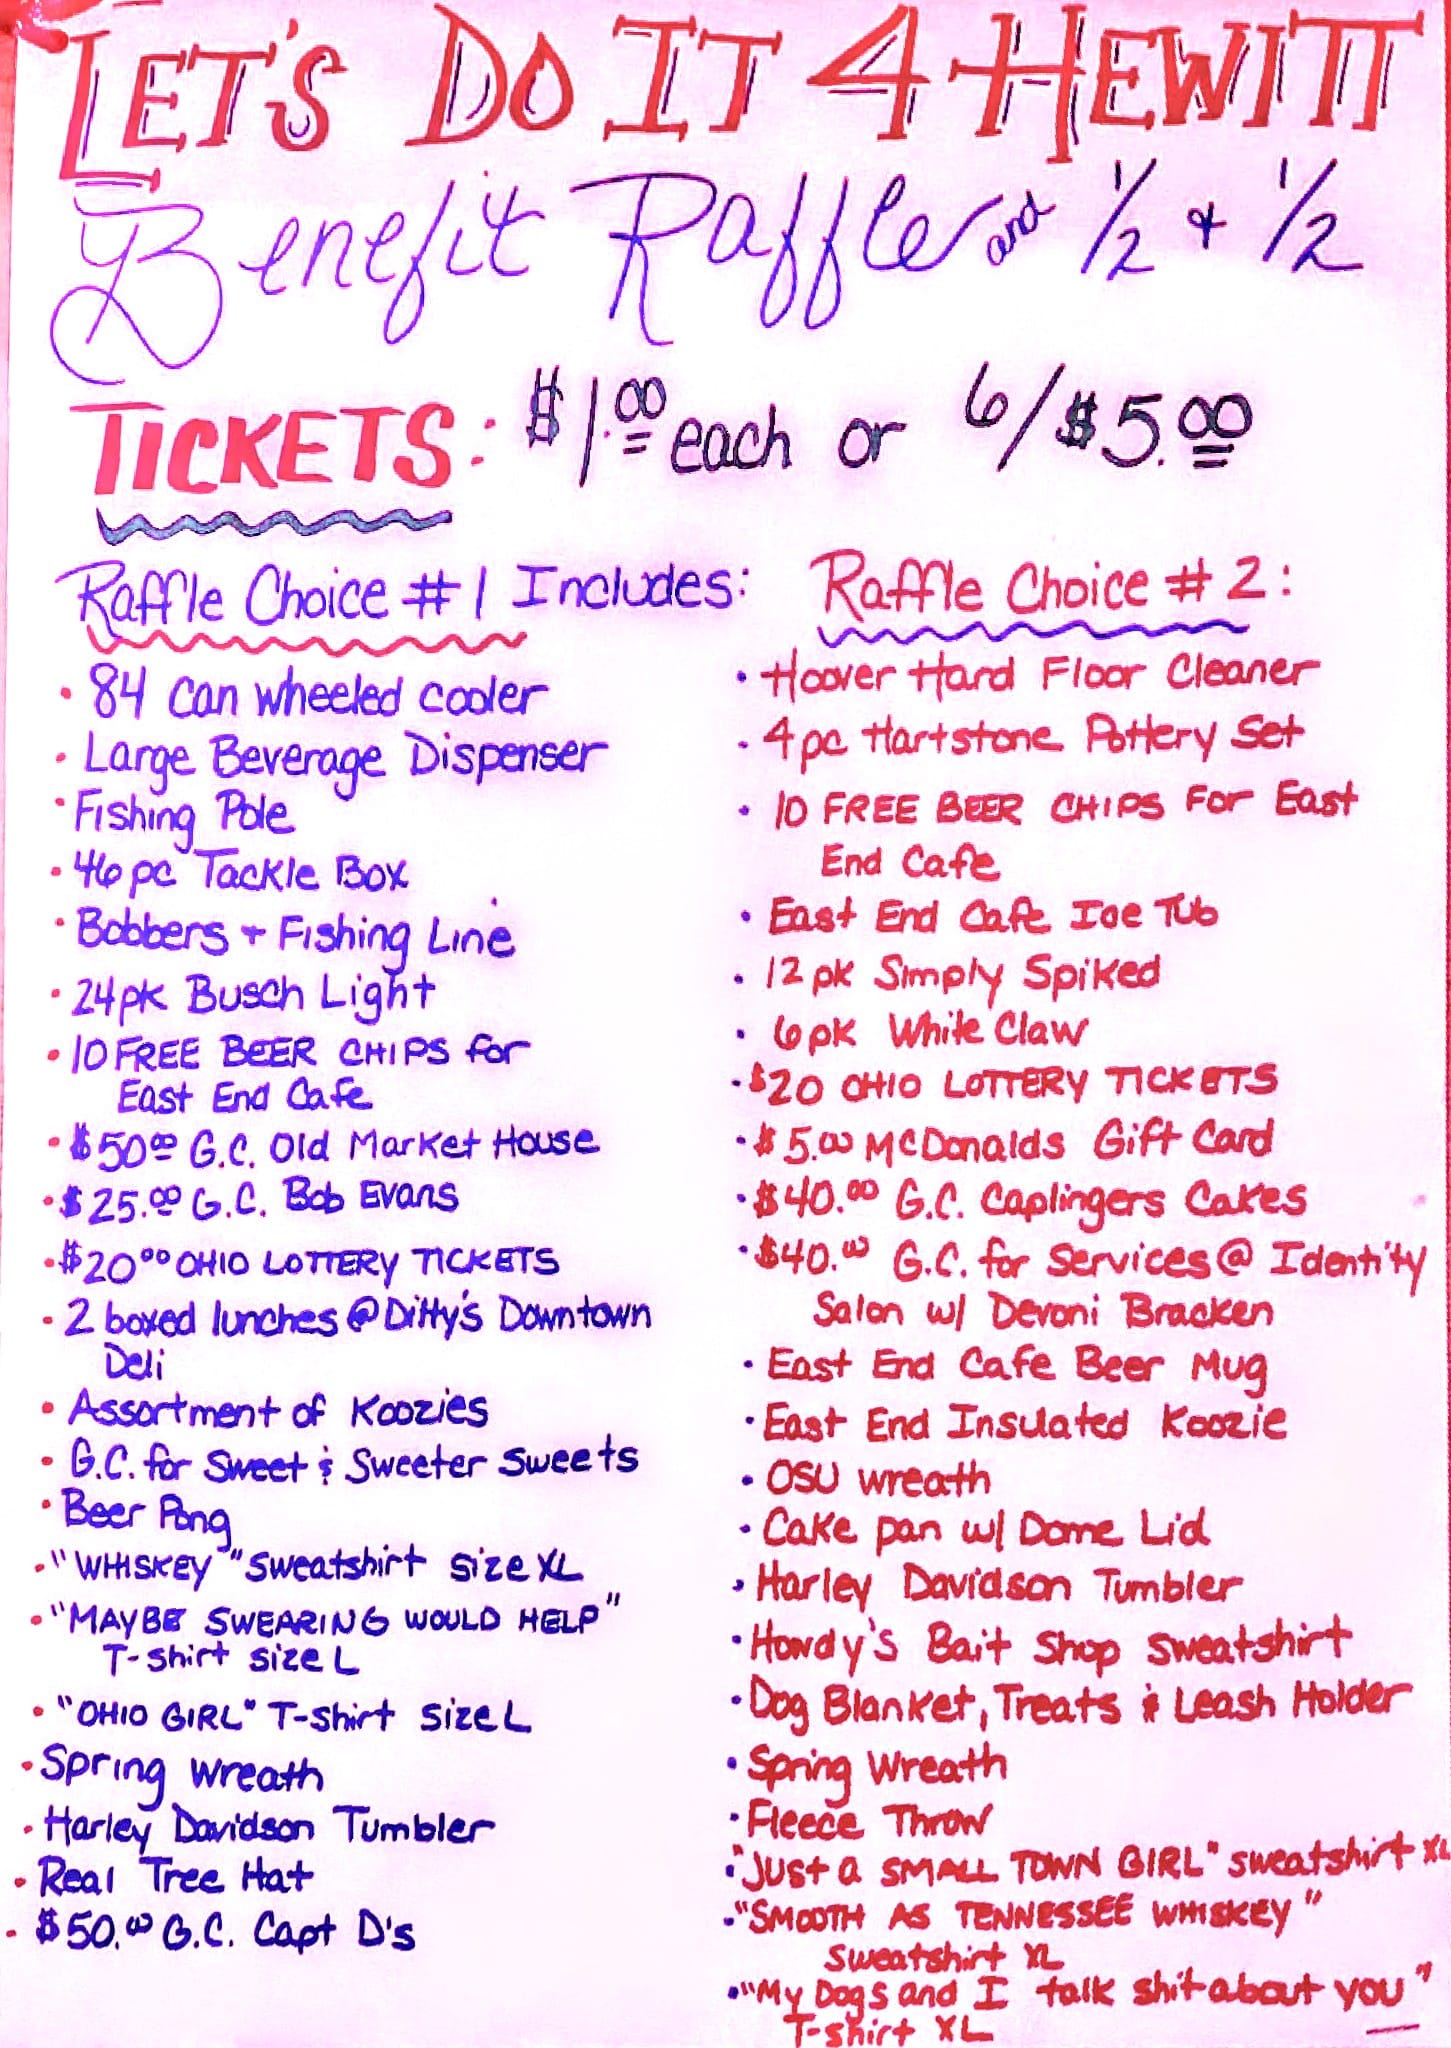 LET'S DO IT 4 HEWITT
Benefit Raffle and 1/2 + 1/2
TICKETS: $1.00 each or 6/$5.00
Raffle Choice #1 Includes:
• 84 can wheeled cooler
• Large Beverage Dispenser
• Fishing Pole
• 46 pc Tackle Box
• Bobbers + Fishing Line
• 24pk Busch Light
• 10 FREE BEER CHIPS for
East End Cafe
• $50.00 G.C. Old Market House
• $25.00 G.C. Bob Evans
• $20.00 OHIO LOTTERY TICKETS
• 2 boxed lunches @ Ditty's Downtown
Deli
• Assortment of Koozies
• G.C. for Sweet & Sweeter Sweets
• Beer Pong
• "WHISKEY" Sweatshirt size XL
• "MAYBE SWEARING WOULD HELP"
T-shirt size L
• "OHIO GIRL" T-shirt size L
• Spring wreath
• Harley Davidson Tumbler
• Real Tree Hat
• $50.00 G.C. Capt D's
Raffle Choice #2:
• Hoover Hard Floor Cleaner
• 4 pc Hartstone Pottery Set
• 10 FREE BEER CHIPS For East
End Cafe
• East End Cafe Ice Tub
• 12 pk Simply Spiked
• 6 pk White Claw
• $20 OHIO LOTTERY TICKETS
• $5.00 McDonalds Gift Card
• $40.00 G.C. Caplingers Cakes
• $40.00 G.C. for Services @ Identity
Salon w/ Devoni Bracken
• East End Cafe Beer Mug
• East End Insulated Koozie
• OSU wreath
• Cake pan w/ Dome Lid
• Harley Davidson Tumbler
• Howdy's Bait Shop Sweatshirt
• Dog Blanket, Treats & Leash Holder
• Spring Wreath
• Fleece Throw
• "Just a SMALL TOWN GIRL" sweatshirt XL
• "SMOOTH AS TENNESSEE WHISKEY"
Sweatshirt XL
• "My Dogs and I talk shit about you"
T-shirt XL